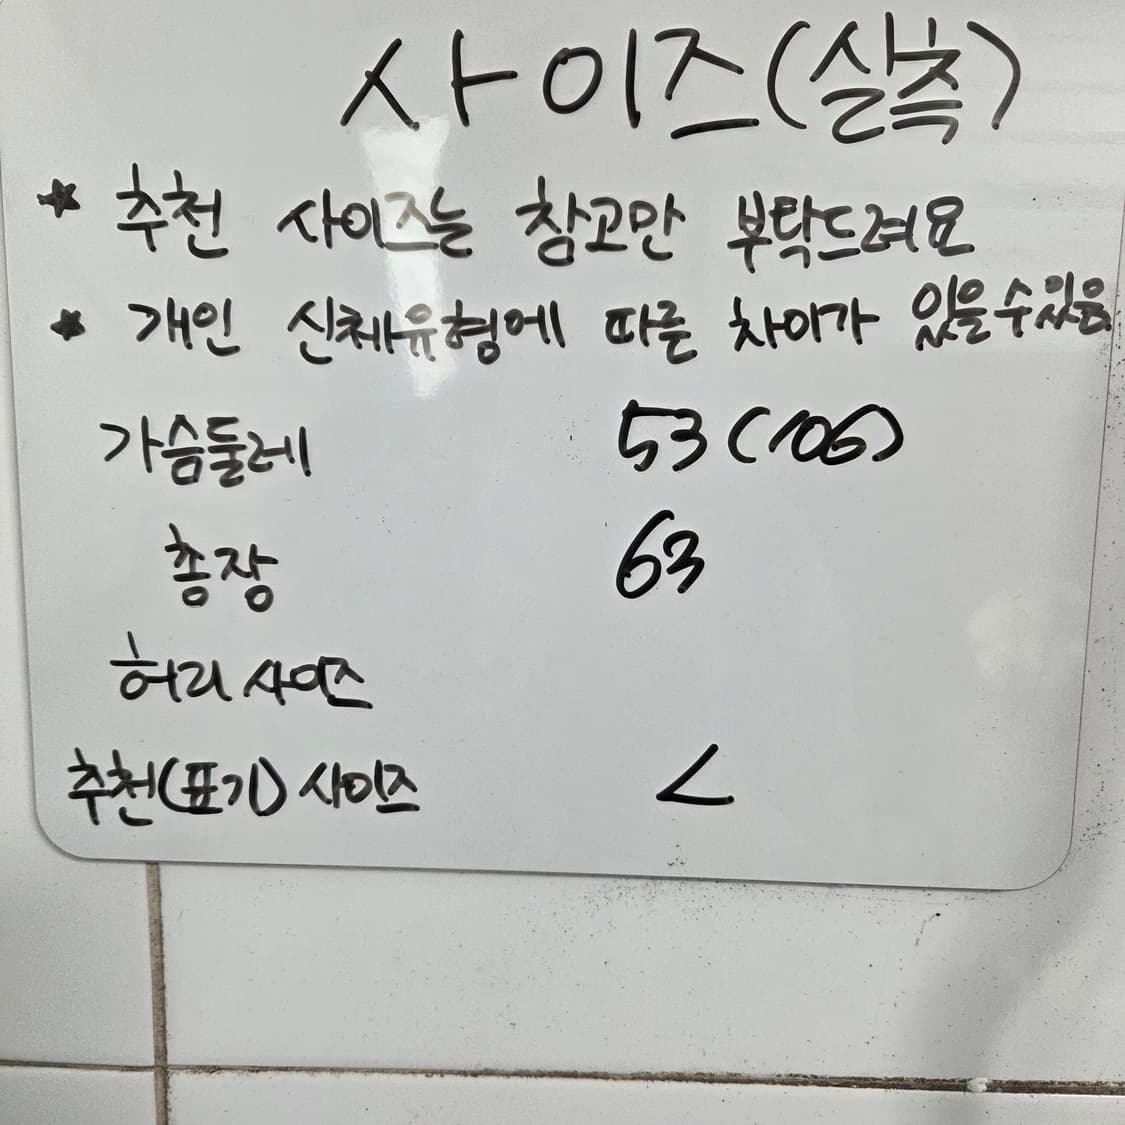 사이즈(실측)
★ 추천 사이즈는 참고만 부탁드려요
★ 개인 신체유형에 따른 차이가 있을수있음
가슴둘레 53(106)
총장 63
허리 사이즈
추천(표기) 사이즈 L